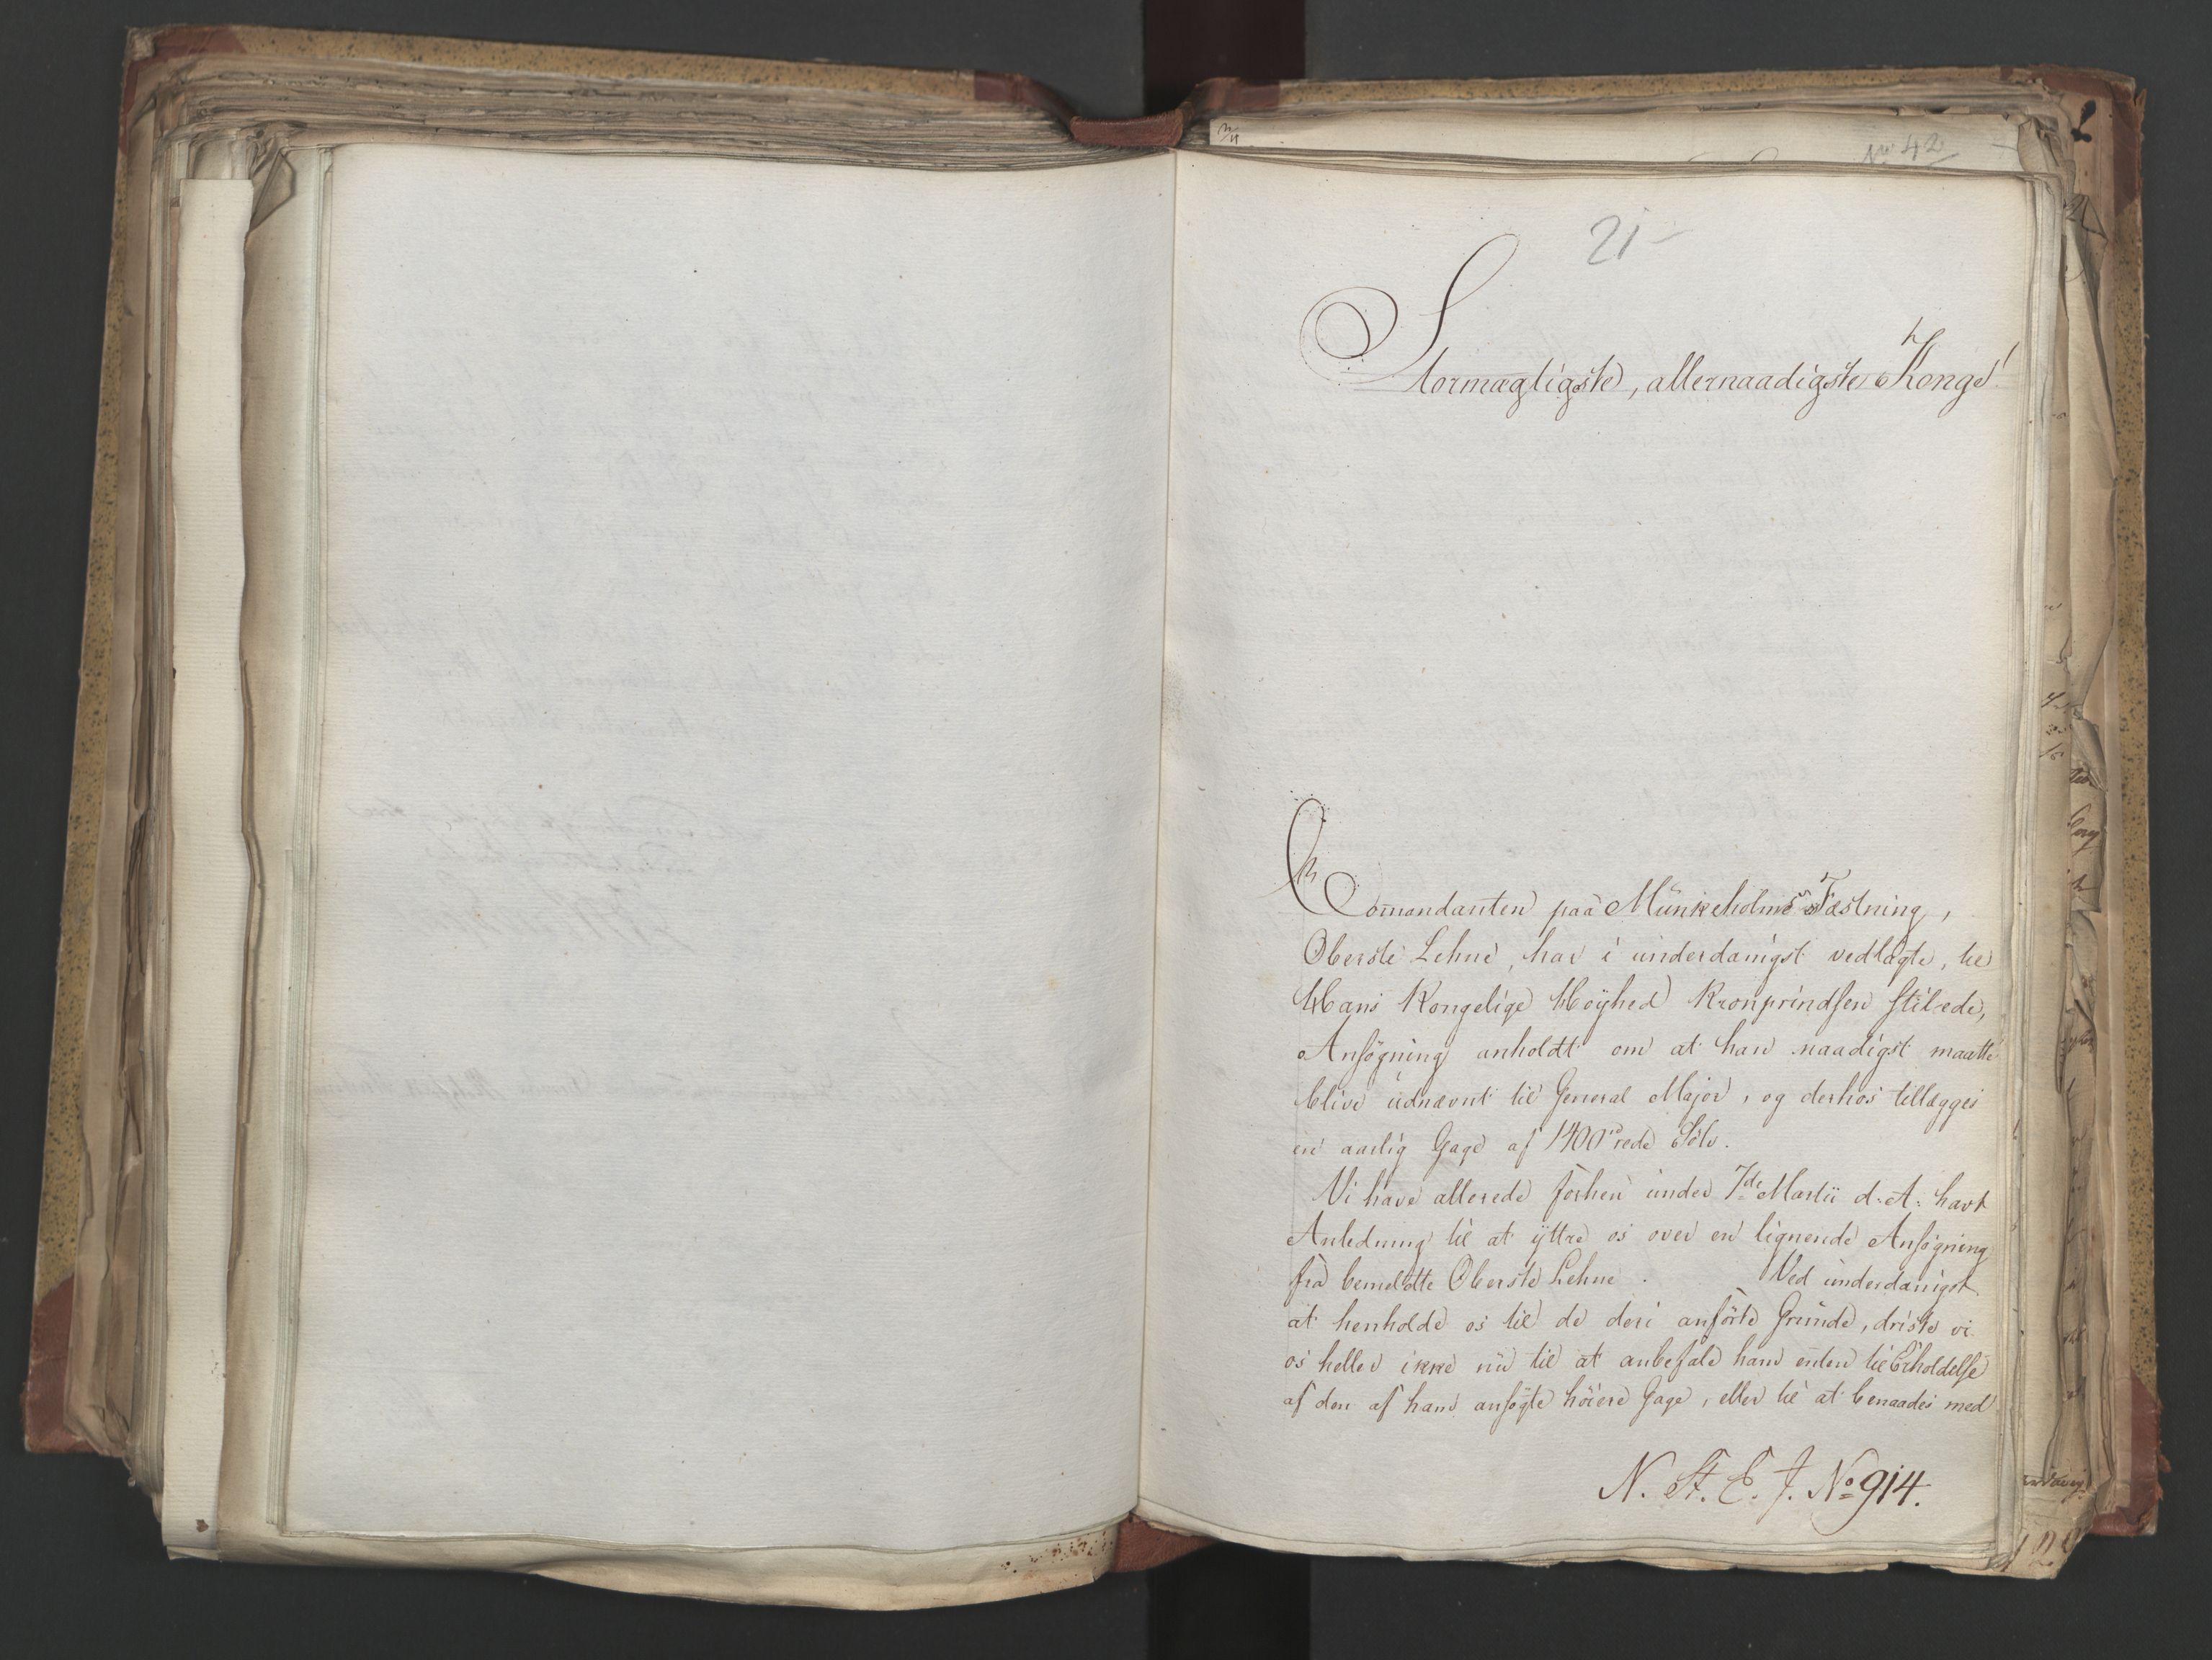 No 42
21
Stormægtigste, allernaadigste Konge!
Com̅andanten paa Munkeholms Fæstning,
Oberste Lehne, har i underdanigst vedlagte, til
Hans Kongelige Høyhed Kronprindsen stilede,
Ansøgning anholdt om at han naadigst maatte
blive udnævnt til General Major, og derhos tillægges
en aarlig Gage af 1400 rd rede Sølv.
Vi have allerede forhen under 7de Martii d. A. havt
Anledning til at yttre os over en lignende Ansøgning
fra bemeldte Oberste Lehne. Ved underdanigst
at henholde os til de deri anførte Grunde, driste vi
os heller ikke nu til at anbefale ham enten til Erholdelse
af den af ham ansøgte høiere Gage, eller til at benaades med
N. St. E. J. No 914.